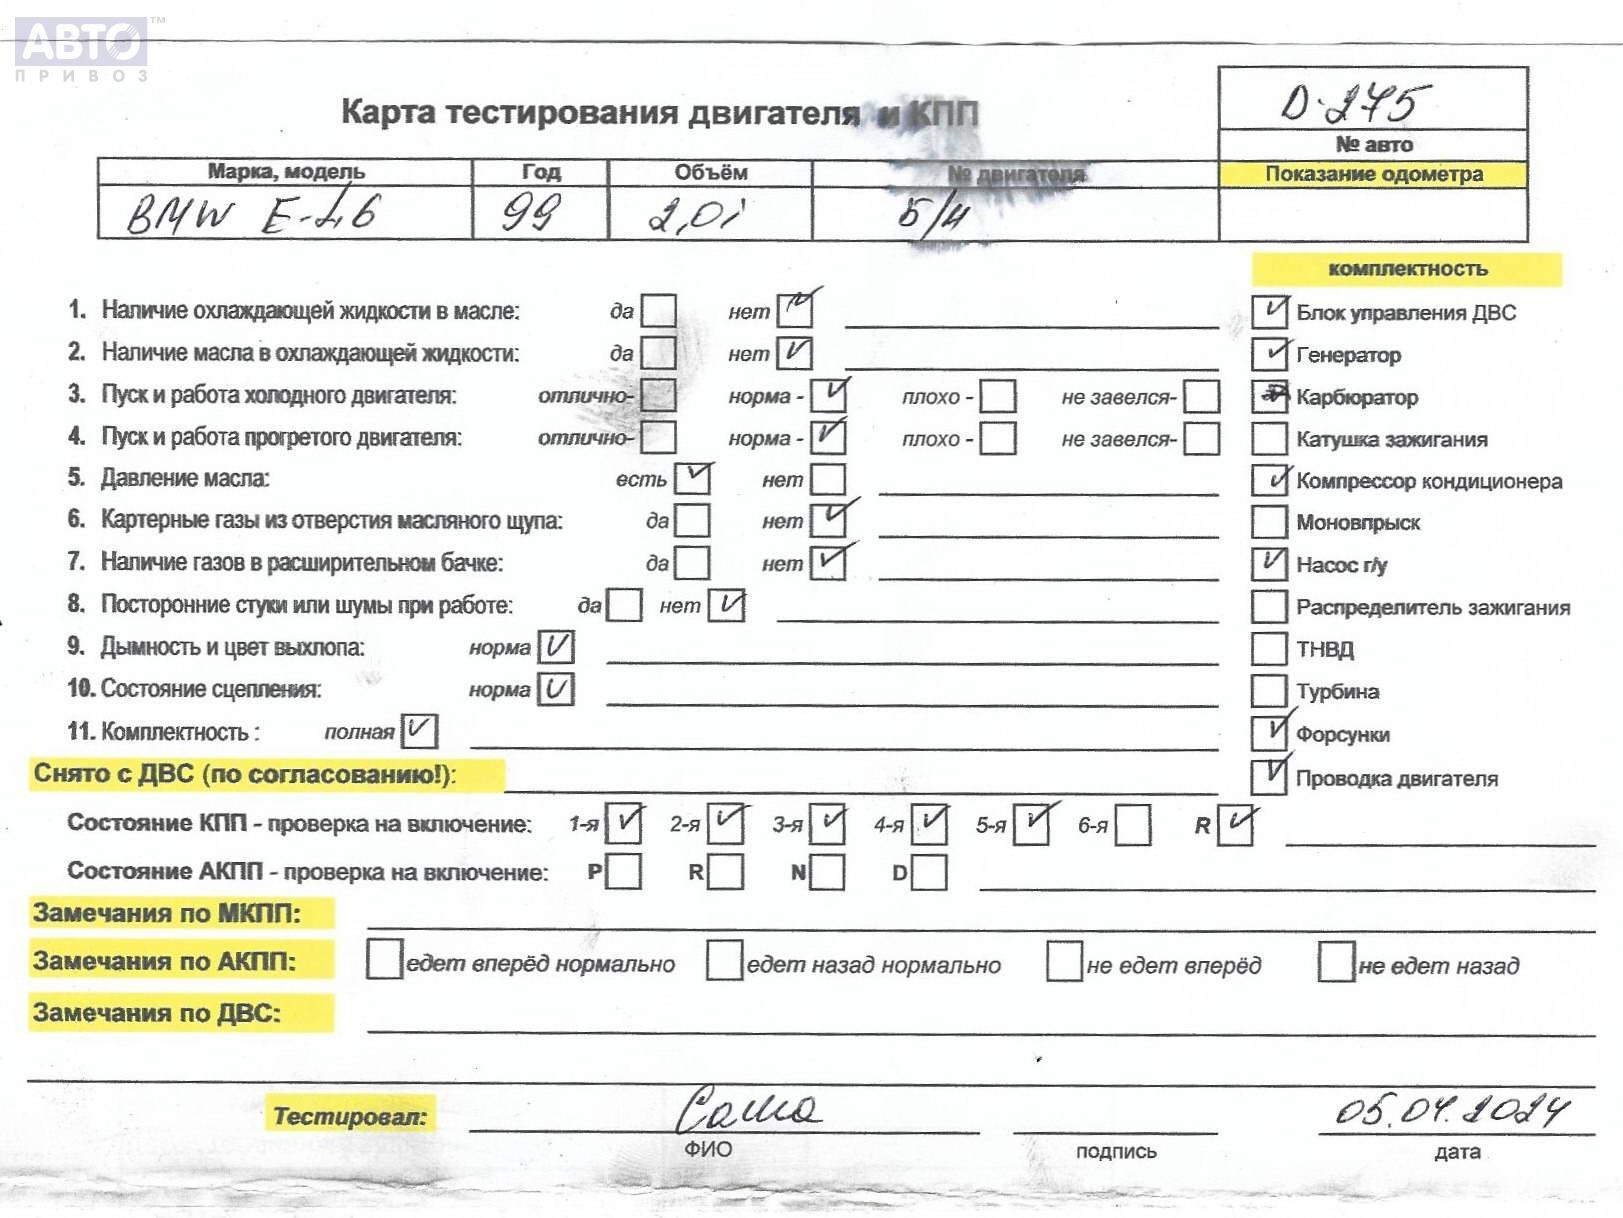 АВТО™
ПРИВОЗ
D-275
Карта тестирования двигателя и КПП
№ авто
Марка, модель Год Объём № двигателя Показание одометра
BMW E-46 99 2,0i Б/Н
комплектность
1. Наличие охлаждающей жидкости в масле: да нет Блок управления ДВС
2. Наличие масла в охлаждающей жидкости: да нет Генератор
3. Пуск и работа холодного двигателя: отлично- норма - плохо - не завелся- Карбюратор
4. Пуск и работа прогретого двигателя: отлично- норма - плохо - не завелся- Катушка зажигания
5. Давление масла: есть нет Компрессор кондиционера
6. Картерные газы из отверстия масляного щупа: да нет Моновпрыск
7. Наличие газов в расширительном бачке: да нет Насос г/у
8. Посторонние стуки или шумы при работе: да нет Распределитель зажигания
9. Дымность и цвет выхлопа: норма ТНВД
10. Состояние сцепления: норма Турбина
11. Комплектность : полная Форсунки
Снято с ДВС (по согласованию!): Проводка двигателя
Состояние КПП - проверка на включение: 1-я 2-я 3-я 4-я 5-я 6-я R
Состояние АКПП - проверка на включение: P R N D
Замечания по МКПП:
Замечания по АКПП: едет вперёд нормально едет назад нормально не едет вперёд не едет назад
Замечания по ДВС:
Тестировал: Саша 05.04.2024
ФИО подпись дата